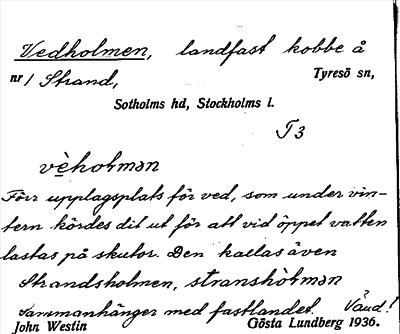 Vedholmen, landfast kobbe å
nr 1 Strand, Tyresö sn,
Sotholms hd, Stockholms l.
T3
vèholmən
Förr upplagsplats för ved, som under vin-
tern kördes dit ut för att vid öppet vatten
lastas på skutor. Den kallas även
Strandsholmen, stranshòlmən
Sammanhänger med fastlandet.
John Westin Gösta Lundberg 1936.